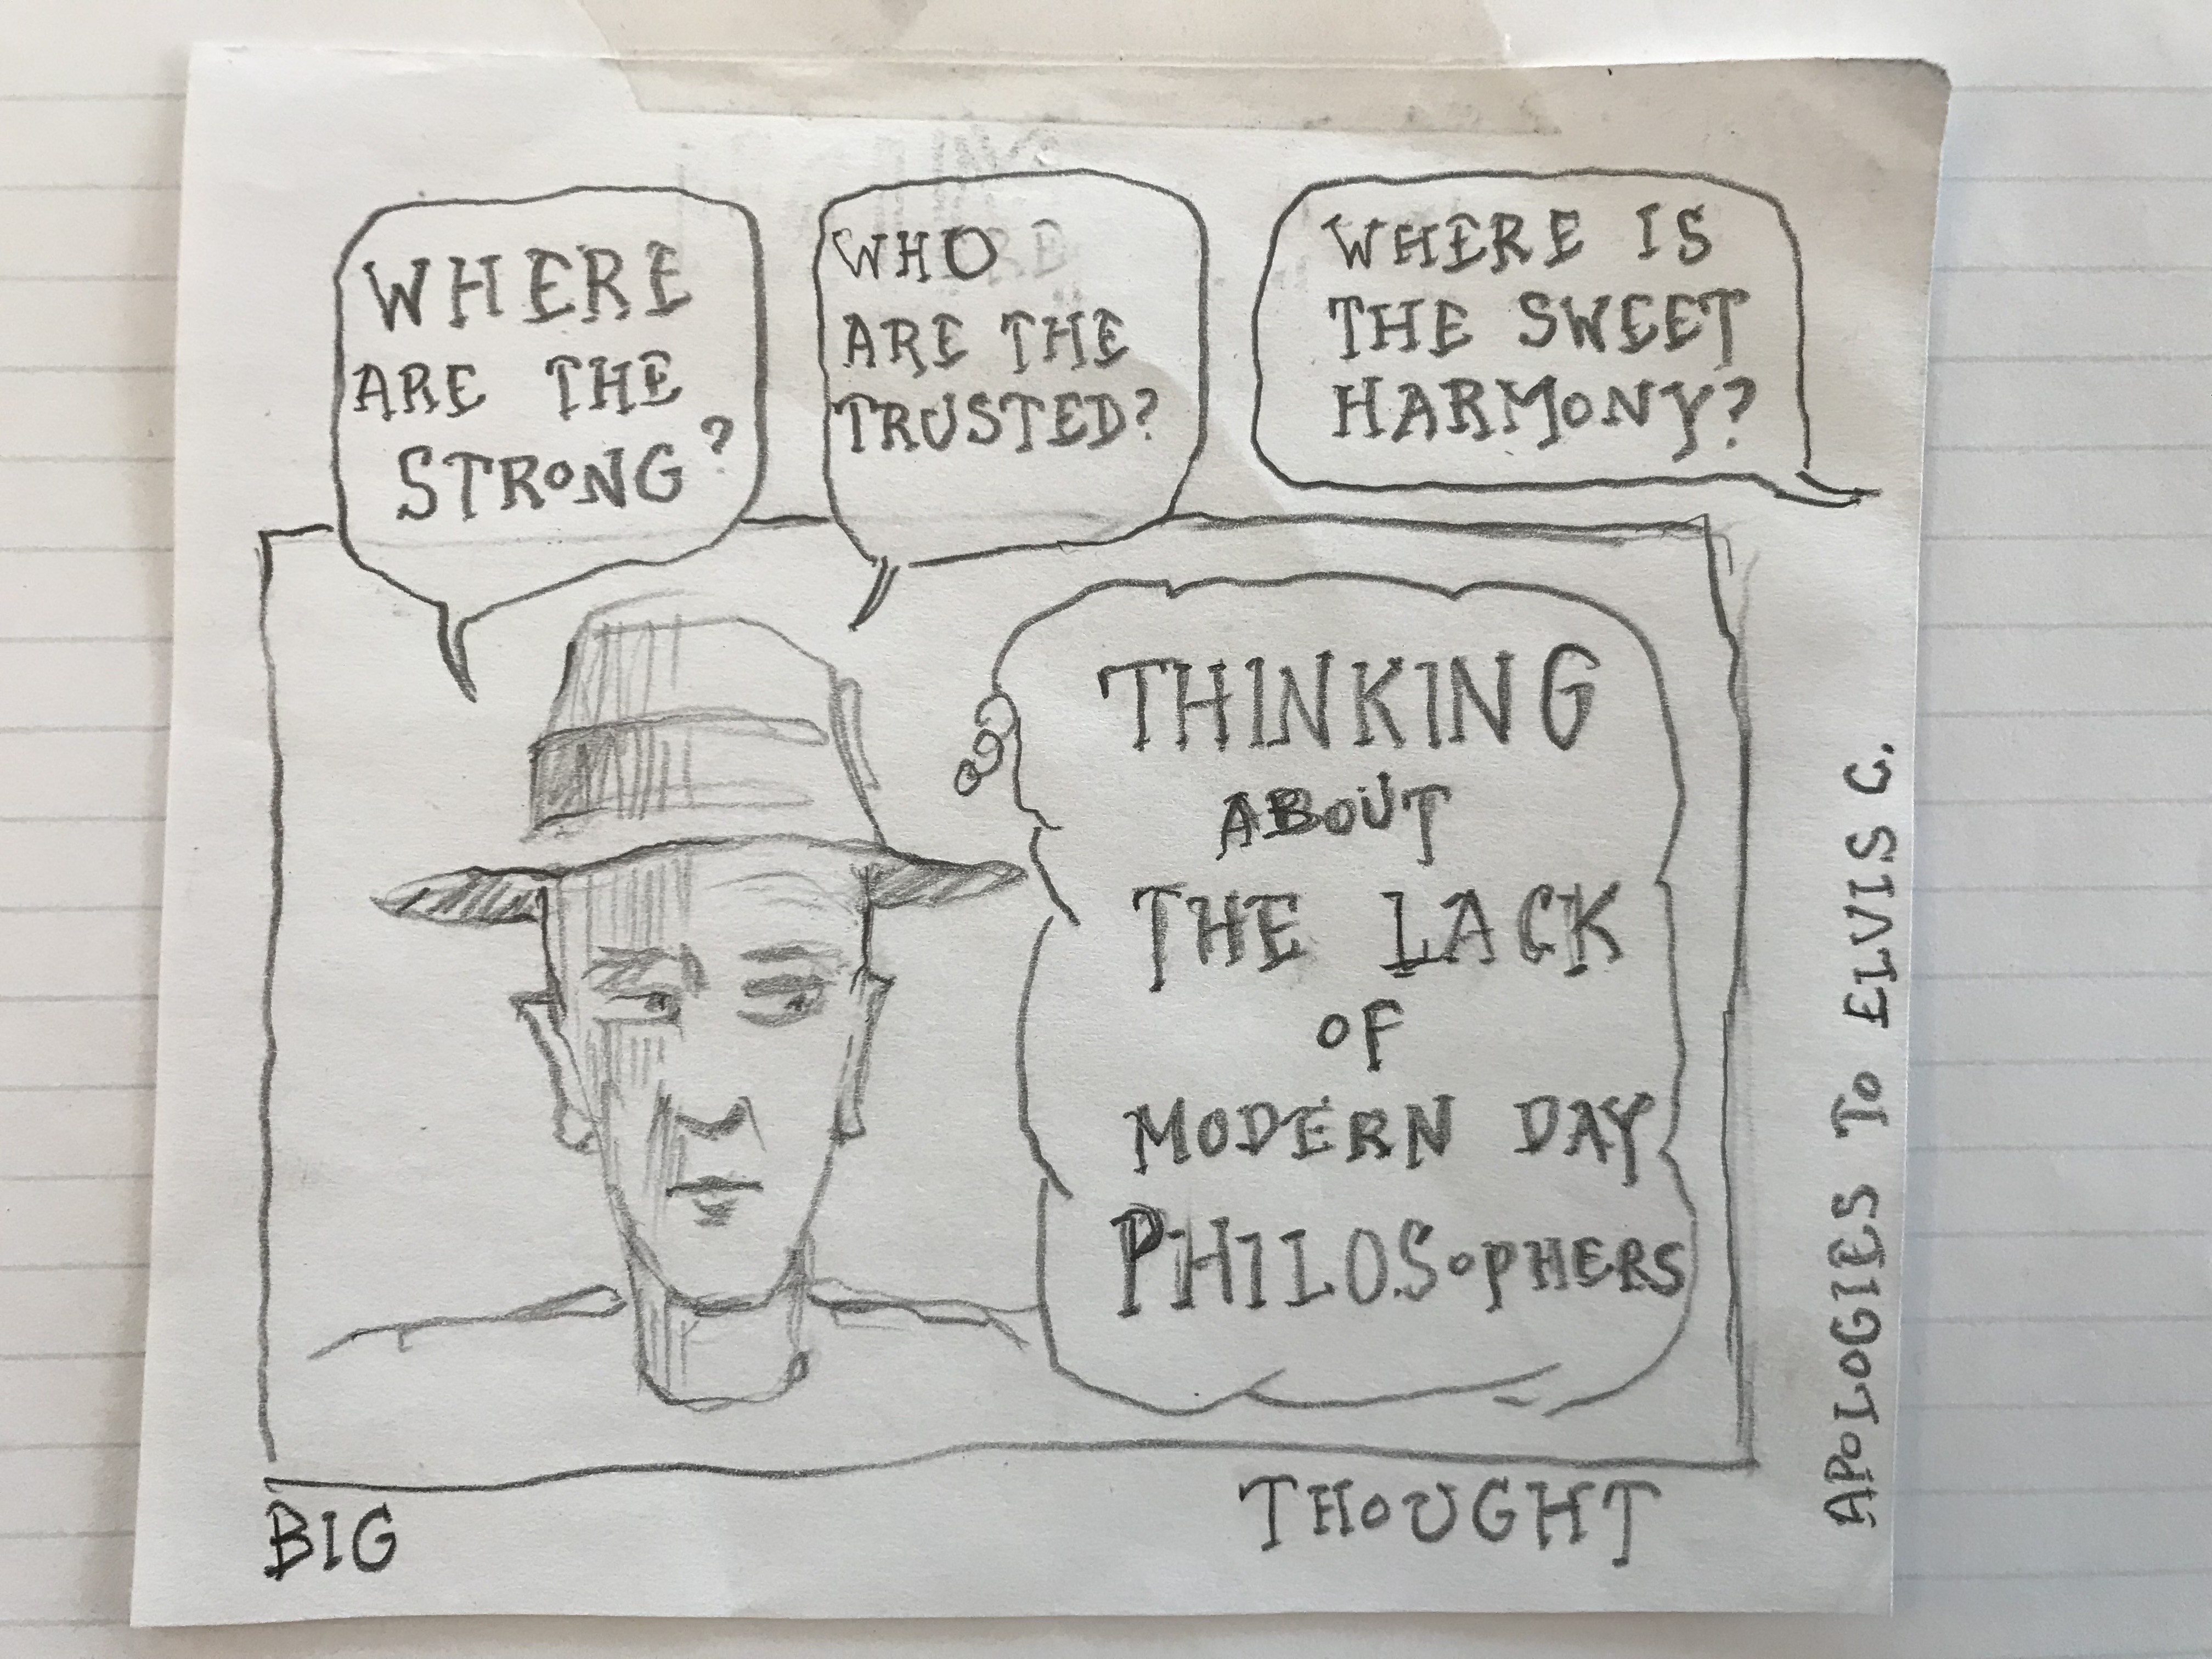 WHERE
ARE THE
STRONG?
WHO
ARE THE
TRUSTED?
WHERE IS
THE SWEET
HARMONY?
THINKING
ABOUT
THE LACK
OF
MODERN DAY
PHILOSOPHERS
BIG THOUGHT
APOLOGIES TO ELVIS C.